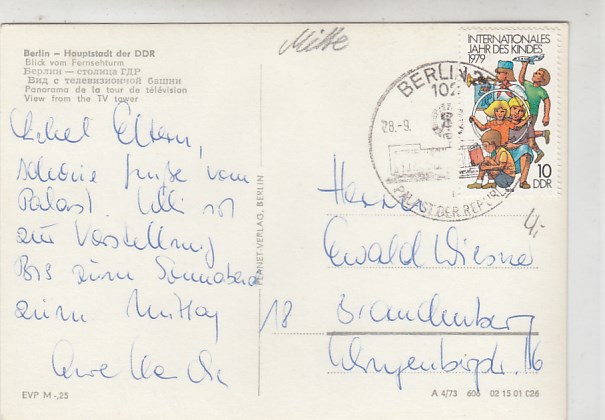 Mitte
Berlin — Hauptstadt der DDR
Blick vom Fernsehturm
Берлин — столица ГДР
Вид с телевизионной башни
Panorama de la tour de télévision
View from the TV tower
INTERNATIONALES
JAHR DES KINDES
1979
10
DDR
BERLIN 2
102
28.-9.
PALAST DER REPUBLIK
4,-
Eltern,
schöne Grüße vom
Palast. Ulli ist
zur Vorstellung
Bis zum Sonnabend
zum Mittag
Eure
PLANET-VERLAG, BERLIN
Herrn
Ewald Wiesner
18 Brandenburg
16
EVP M -,25
A 4/73 606 02 15 01 C26